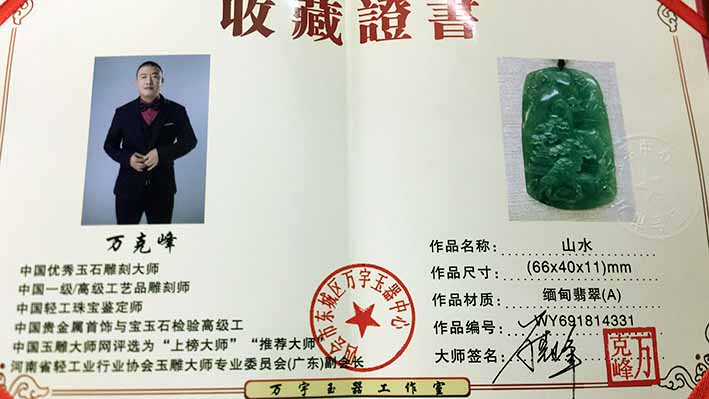 收藏證書
万克峰
中国优秀玉石雕刻大师
中国一级/高级工艺品雕刻师
中国轻工珠宝鉴定师
中国贵金属首饰与宝玉石检验高级工
中国玉雕大师网评选为“上榜大师”“推荐大师”
河南省轻工业行业协会玉雕大师专业委员会(广东)副会长
四会市东城区万宇玉器中心
作品名称: 山水
作品尺寸: (66x40x11)mm
作品材质: 缅甸翡翠(A)
作品编号: WY691814331
大师签名:
万克峰
万宇玉器工作室